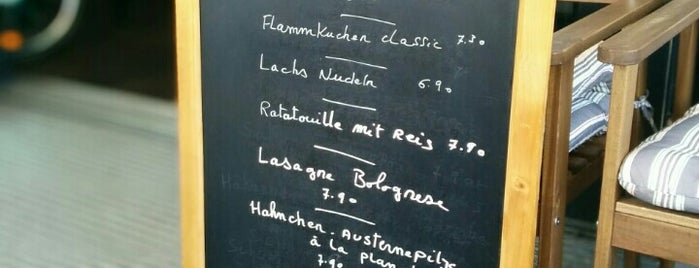 Flammkuchen classic 7.90
Lachs Nudeln 6.90
Ratatouille mit Reis 7.90
Lasagne Bolognese
7.90
Hähnchen. Austernepilze
à la plan
7.90